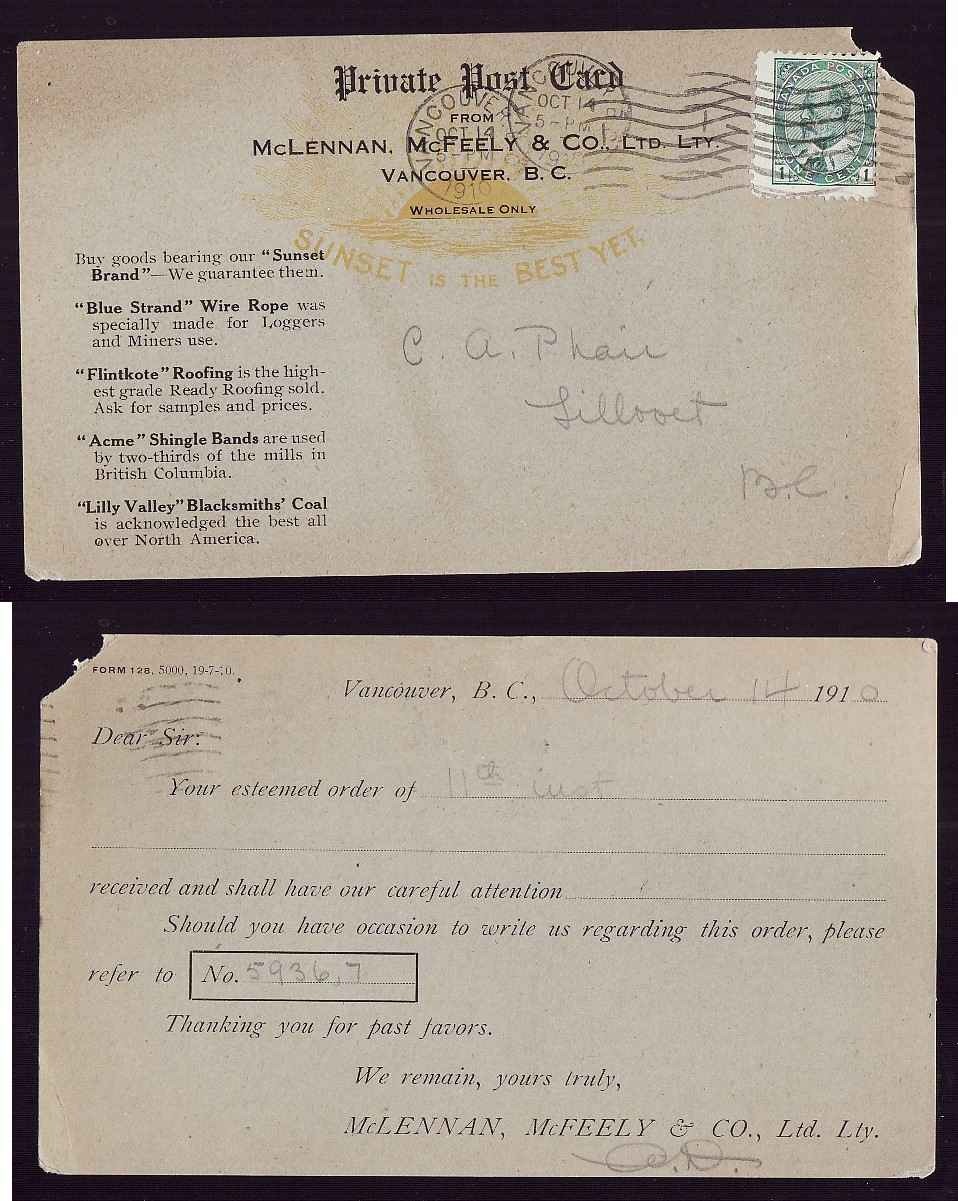 Private Post Card
FROM
McLENNAN, McFEELY & CO., LTD. LTY.
VANCOUVER, B. C.
WHOLESALE ONLY
SUNSET IS THE BEST YET.
VANCOUVER
OCT 14
5-PM
1910
VANCOUVER
OCT 14
5-PM
CANADA POSTAGE
ONE CENT
1 1
Buy goods bearing our "Sunset
Brand"—We guarantee them.
"Blue Strand" Wire Rope was
specially made for Loggers
and Miners use.
"Flintkote" Roofing is the high-
est grade Ready Roofing sold.
Ask for samples and prices.
"Acme" Shingle Bands are used
by two-thirds of the mills in
British Columbia.
"Lilly Valley" Blacksmiths' Coal
is acknowledged the best all
over North America.
C. A. Phair
Lillooet
B.C.
FORM 128, 5000, 19-7-10.
Vancouver, B. C., October 14 1910
Dear Sir:
Your esteemed order of 11th inst
received and shall have our careful attention
Should you have occasion to write us regarding this order, please
refer to No. 5936,7
Thanking you for past favors.
We remain, yours truly,
McLENNAN, McFEELY & CO., Ltd. Lty.